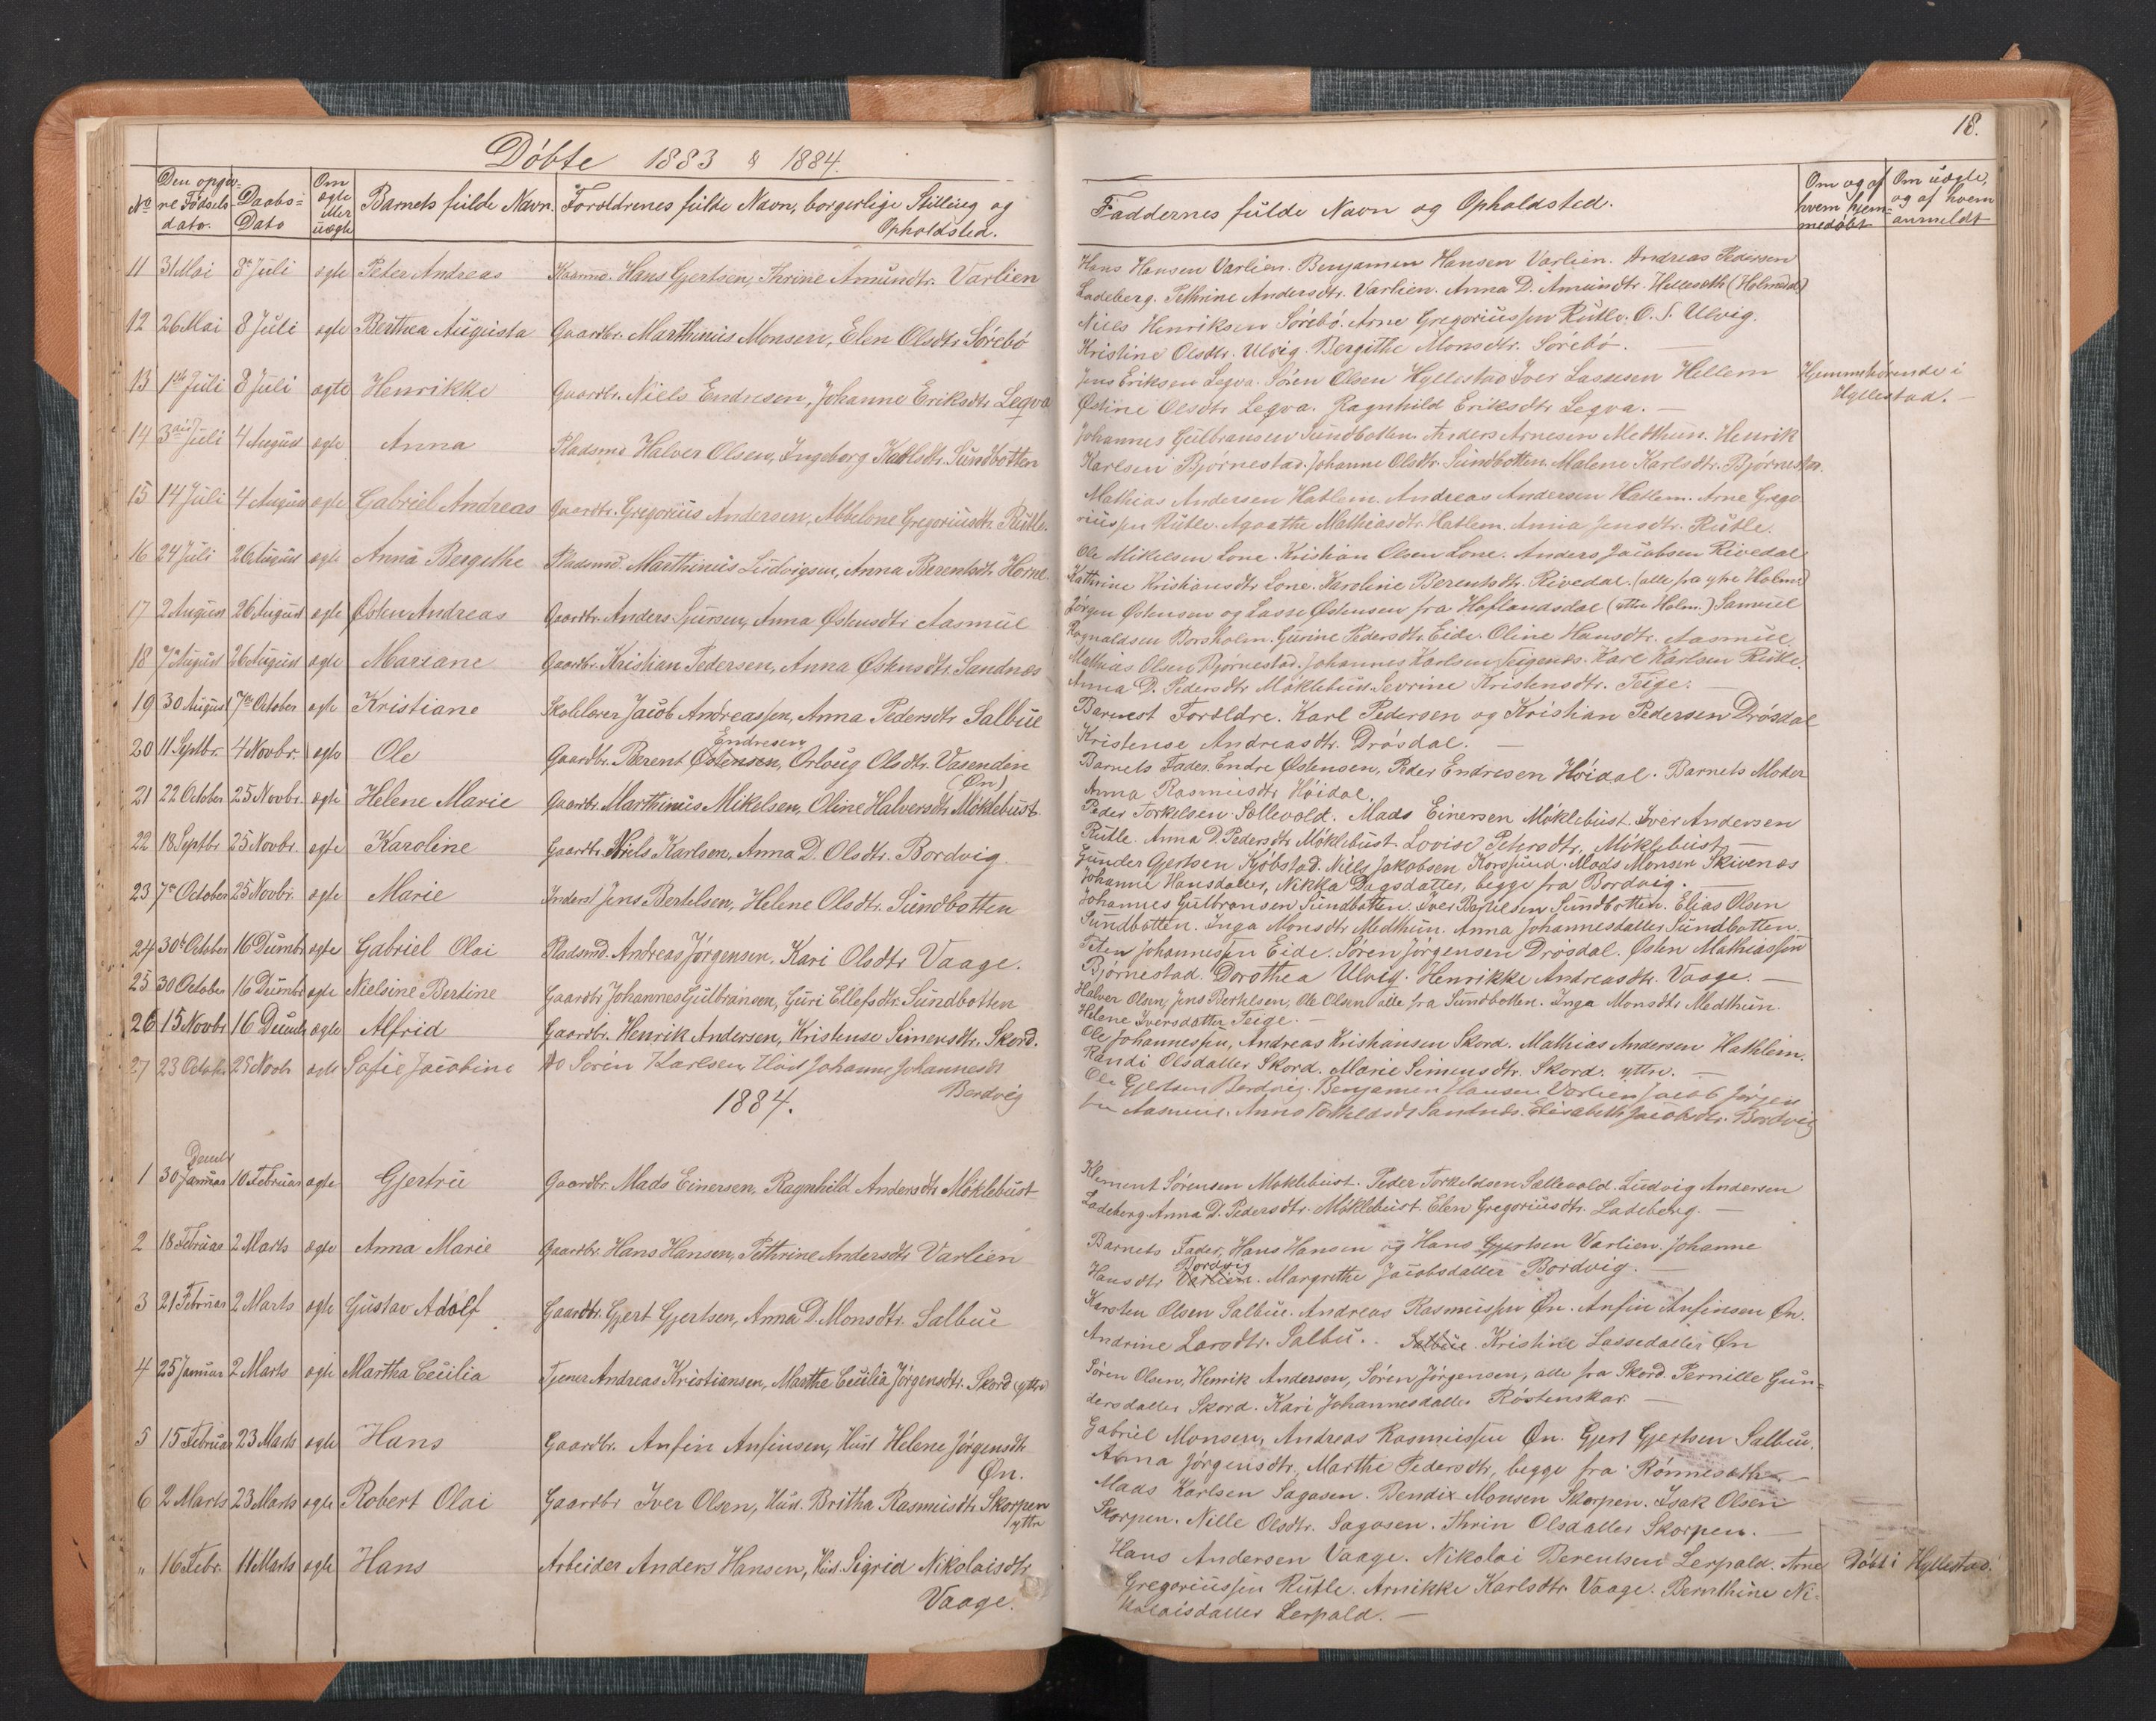 Döbte 1883 & 1884.
No
Den opgiv-
ne Födsels-
dato.
Daabs-
Dato
Om
ægte
eller
uægte
Barnets fulde Navn.
Foræeldrenes fulde Navn, borgerlige Stilling og
Opholdsted.
11 31 Mai 8de Juli ægte Peter Andreas Kaarmd. Hans Gjertsen, Thrine Amundsdtr. Varlien
12 26 Mai 8 Juli ægte Berthea Augusta Gaardbr. Marthinus Monsen, Elen Olsdtr. Sörebö
13 1ste Juli 8 Juli ægte Henrikke Gaardbr. Niels Endresen, Johanne Eriksdtr. Leqva
14 3die Juli 4 August ægte Anna Pladsmd. Halver Olsen, Ingeborg Karlsdtr. Sundbotten
15 14 Juli 4 August ægte Gabriel Andreas Gaardbr. Gregorius Andersen, Abbelone Gregoriusdtr. Rutle.
16 24 Juli 26 August ægte Anna Bergithe Pladsmd. Marthinus Ludvigsen, Anna Berentsdtr. Horne
17 2 August 26 August ægte Østen Andreas Gaardbr. Anders Sjursen, Anna Østensdtr. Aasmul
18 7de August 26 August ægte Mariane Gaardbr. Kristian Pedersen, Anna Østensdtr. Sandnæs
19 30 August 7de October ægte Kristiane Skolelærer Jacob Andreassen, Anna Pedersdtr Salbue
20 11 Septbr. 4 Novbr. ægte Ole Gaardbr. Berent Østensen, Orloug Olsdtr. Vasenden
Endresen
(Øn)
21 22 October 25 Novbr. ægte Helene Marie Gaardbr. Marthinus Mikelsen, Oline Halversdtr Möklebust
22 18 Septbr 25 Novbr. ægte Karoline Gaardbr. Niels Karlsen, Anna D. Olsdtr. Bordvig
23 7de October 25 Novbr. ægte Marie Inderst Jens Bertelsen, Helene Olsdtr. Sundbotten
24 30te October 16 Dcembr ægte Gabriel Olai Pladsmd. Andreas Jörgensen, Kari Olsdtr Vaage.
25 30 October 16 Dcembr ægte Nielsine Bertine Gaardbr Johannes Gulbransen, Guri Ellefsdtr. Sundbotten
26 15 Novbr. 16 Dcembr ægte Alfrid Gaardbr. Henrik Andersen, Kristense Simensdtr. Skord.
27 23 October 25 Novbr ægte Sofie Jacobine Do Sören Karlsen, Hust Johanne Johannesdt
Bordvig
1884.
Dcembr
1 30 Januar 10 Februar ægte Gjertru Gaardbr. Mads Einersen, Ragnhild Andersdtr Möklebust
2 18 Februar 2 Marts ægte Anna Marie Gaardbr. Hans Hansen, Pethrine Andersdtr Varlien
3 21 Februar 2 Marts ægte Gustav Adolf Gaardbr. Gjert Gjertsen, Anna D. Monsdtr. Salbue
4 25 Januar 2 Marts ægte Martha Cecilia Tjener Andreas Kristiansen, Marthe Cecilia Jörgensdtr. Skord (yttre)
5 15 Februar 23 Marts ægte Hans Gaardbr. Anfin Anfinsen, Hust Helene Jörgensdtr
Øn.
6 2 Marts 23 Marts ægte Robert Olai Gaardbr Iver Olsen, Hust. Britha Rasmusdtr Skorpen
yttre
" 16 Febr. 11 Marts ægte Hans Arbeider Anders Hansen, Hust. Sigrid Nikolaisdtr
Vaage.
18.
Faddernes fulde Navn og Opholdsted.
Om og af
hvem hjem-
medöbt
Om uægte,
og af hvem
anmeldt
Hans Hansen Varlien. Benjamin Hansen Varlien. Andreas Pedersen
Ladeberg. Pethrine Andersdtr. Varlien. Anna D. Amundsdtr. Helleseth (Holmedal)
Niels Henriksen Sörebö. Arne Gregoriussen Rutle. O. S. Ulvig.
Kristine Olsdtr. Ulvig. Bergithe Monsdtr. Sörebö.
Jens Eriksen Leqva. Sören Olsen Hyllestad Iver Lassesen Hellem
Østine Olsdtr Leqva. Ragnhild Eriksdtr Leqva. —
Hjemmehörende i
Hyllestad. —
Johannes Gulbransen Sundbotten Anders Arnesen Metthun. Henrik
Karlsen Bjørnestad. Johanne Olsdtr. Sundbotten. Malene Karlsdtr. Bjørnestad.
Mathias Andersen Hatlem. Andreas Andersen Hatlem. Arne Grego-
riussen Rutle. Agaathe Mathiasdtr. Hatlem. Anna Jensdtr. Rutle.
Ole Mikelsen Lone. Kristian Olsen Lone. Anders Jacobsen Rivedal
Kathrine Kristiansdtr Lone. Karoline Berentsdtr. Rivedal. (alle fra ytre Holmd)
Jörgen Østensen og Lasse Østensen fra Haflandsdal (yttre Holm.) Samuel
Rognaldsen Borsholm. Gurine Pedersdtr. Eide. Oline Hansdtr. Aasmul
Mathias Olsen Bjørnestad. Johannes Karlsen Teigenes. Karl Karlsen Rutle.
Anna D. Pedersdtr Möklebust. Sevrine Kristensdtr. Teige. —
Barnest Foreldre. Karl Pedersen og Kristian Pedersen Drösdal
Kristense Andreasdtr. Drösdal. —
Barnets Fader. Endre Østensen, Peder Endresen Höidal. Barnets Moder
Anna Rasmusdtr Höidal.
Peder Torkelsen Sollevold. Mads Einersen Möklebust. Iver Andersen
Rutle. Anna D. Pedersdtr Möklebust. Lovise Petersdtr. Möklebust. —
Gunder Gjertsen Kjöbstad. Niels Jakobsen Korssund. Mads Monsen Skivenes
Johanne Hansdatter, Nikka Dagsdatter, begge fra Bordvig. —
Johannes Gulbransen Sundbotten. Iver Bertelsen Sundbotten. Elias Olsen
Sundbotten. Inga Monsdtr Medthun. Anna Johannesdatter Sundbotten.
Johannessen Eide. Sören Jörgensen Drösdal. Østen Mathiassen
Bjørnestad. Dorothea Ulvig. Henrikke Andreasdtr. Vaage. —
Halver Olsen, Jens Bertelsen, Ole Olsen alle fra Sundbotten. Inga Monsdtr Medthun.
Helene Iversdatter Teige. —
Ole Johannessen, Andreas Kristiansen Skord. Mathias Andersen Hathlem.
Randi Olsdatter Skord. Marie Simensdtr. Skord. yttre. —
Ole Gjertsen Bordvig. Benjamin Hansen Varlien Jacob Jörgen
sen Aasmul. Anna Torkelsdt Sandnæs. Elisabeth Jacobsdtr. Bordvig
Klement Sörensen Moklebust. Peder Torkeldsen Sællevold. Ludvig Andersen
Ladeberg. Anna D. Pedersdtr. Möklebust. Elen Gregoriusdtr. Ladeberg. —
Barnets Fader, Hans Hansen og Hans Gjertsen Varlien. Johanne
Bordvig
Hansdtr Varlien. Margrethe Jacobsdatter Bordvig. —
Karsten Olsen Salbue. Andreas Rasmussen Øn. Anfin Anfinsen Øn.
Andrine Larsdtr. Salbu. Salbue. Kristine Lassedatter Øn
Sören Olsen, Henrik Andersen, Sören Jörgensen, alle fra Skord. Pernille Gun-
dersdatter Skord. Kari Johannesdatter Röstenskar. —
Gabriel Monsen, Andreas Rasmussen Øn. Gjert Gjertsen Salbu.
Anna Jörgensdtr, Marthe Pedersdtr, begge fra Rönneseth —
Mads Karlsen Sagosen. Bendix Monsen Skorpen. Isak Olsen
Skorpen. Nille Olsdtr. Sagosen. Thrin Olsdatter Skorpen. —
Hans Andersen Vaage. Nikolai Berentsen Lerpald. Arne
Gregoriussen Rutle. Arnikke Karlsdtr Vaage. Bernthine Ni-
kolaisdatter Lerpald. —
Döbt i Hyllestad.